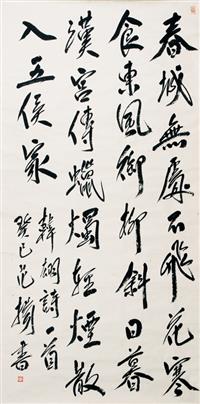 春城無處不飛花寒
食東風御柳斜日暮
漢宮傳蠟燭輕煙散
入五侯家
韓翃詩一首
癸巳范
書